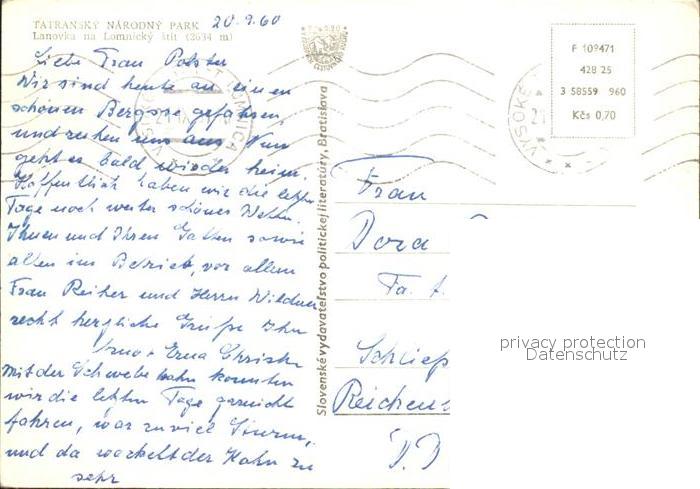 TATRANSKÝ NÁRODNÝ PARK
Lanovka na Lomnický štít (2634 m)
20.9.60
Liebe Frau Polster
Wir sind heute an einen
schönen Bergsee gefahren
und ruhen uns aus. Nun
geht es bald wieder heim.
Hoffentlich haben wir die letzten
Tage noch weiter schönes Wetter.
Ihnen und Ihren Gatten sowie
allen im Betrieb, vor allem
Frau Reiher und Herrn Wildner
recht herzliche Grüße Ihre
Erna
Mit der Schwebebahn konnten
wir die letzten Tage garnicht
fahren, war zuviel Sturm,
und da wackelt der Kahn zu
sehr
Slovenské vydavateľstvo politickej literatúry, Bratislava
F 109471
428 25
3 58559 960
Kčs 0,70
VYSOKÉ
Frau
Dora
Fa.
Schließ
Reichen
privacy protection
Datenschutz